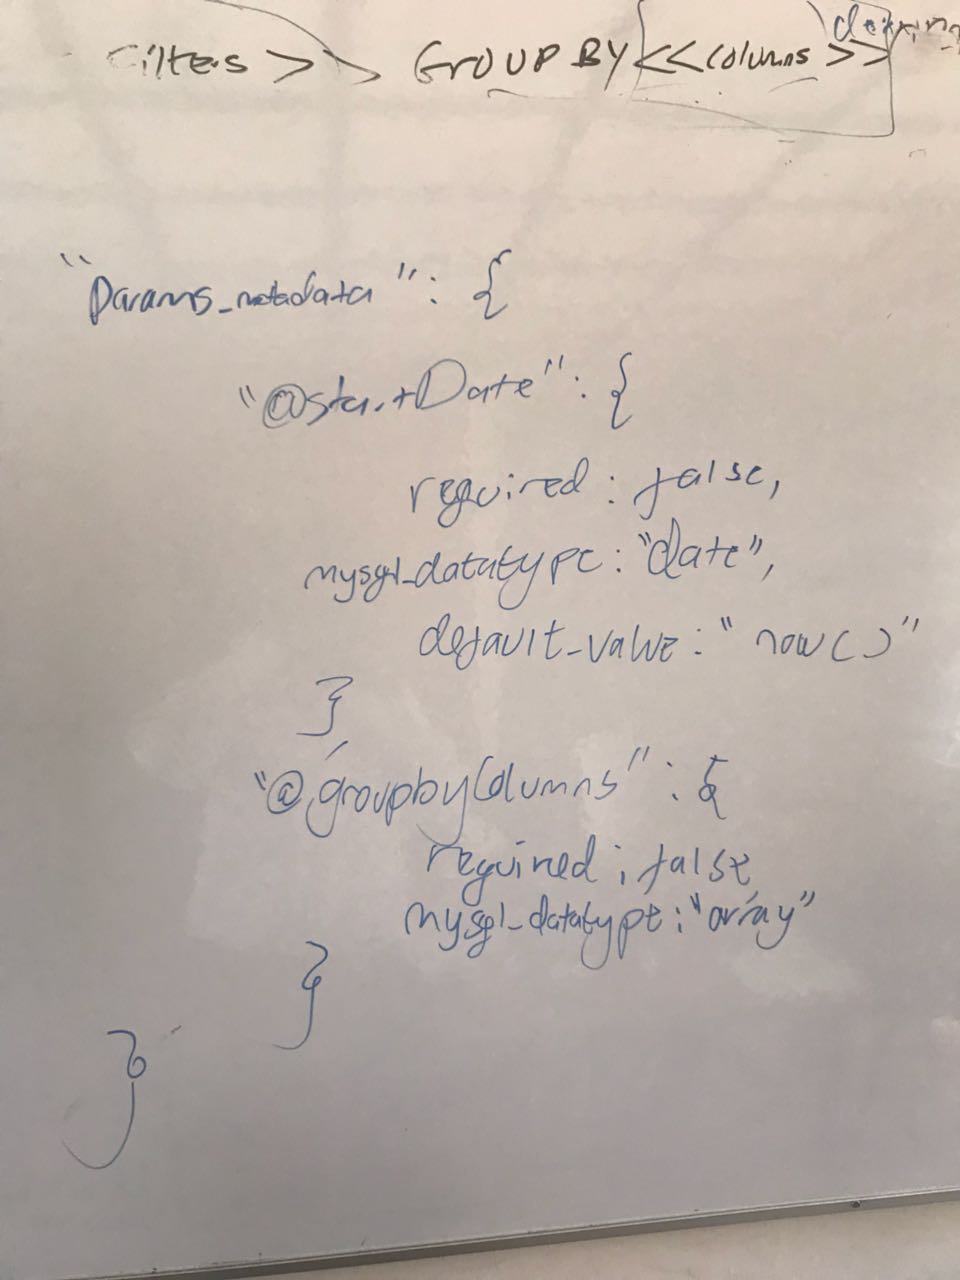 Filters >> GROUP BY <<columns >>
"params_metadata": {
"@startDate": {
required: false,
mysql_datatype: "date",
default_value: "now()"
},
"@groupbyColumns": {
required: false,
mysql_datatype: "array"
}
}